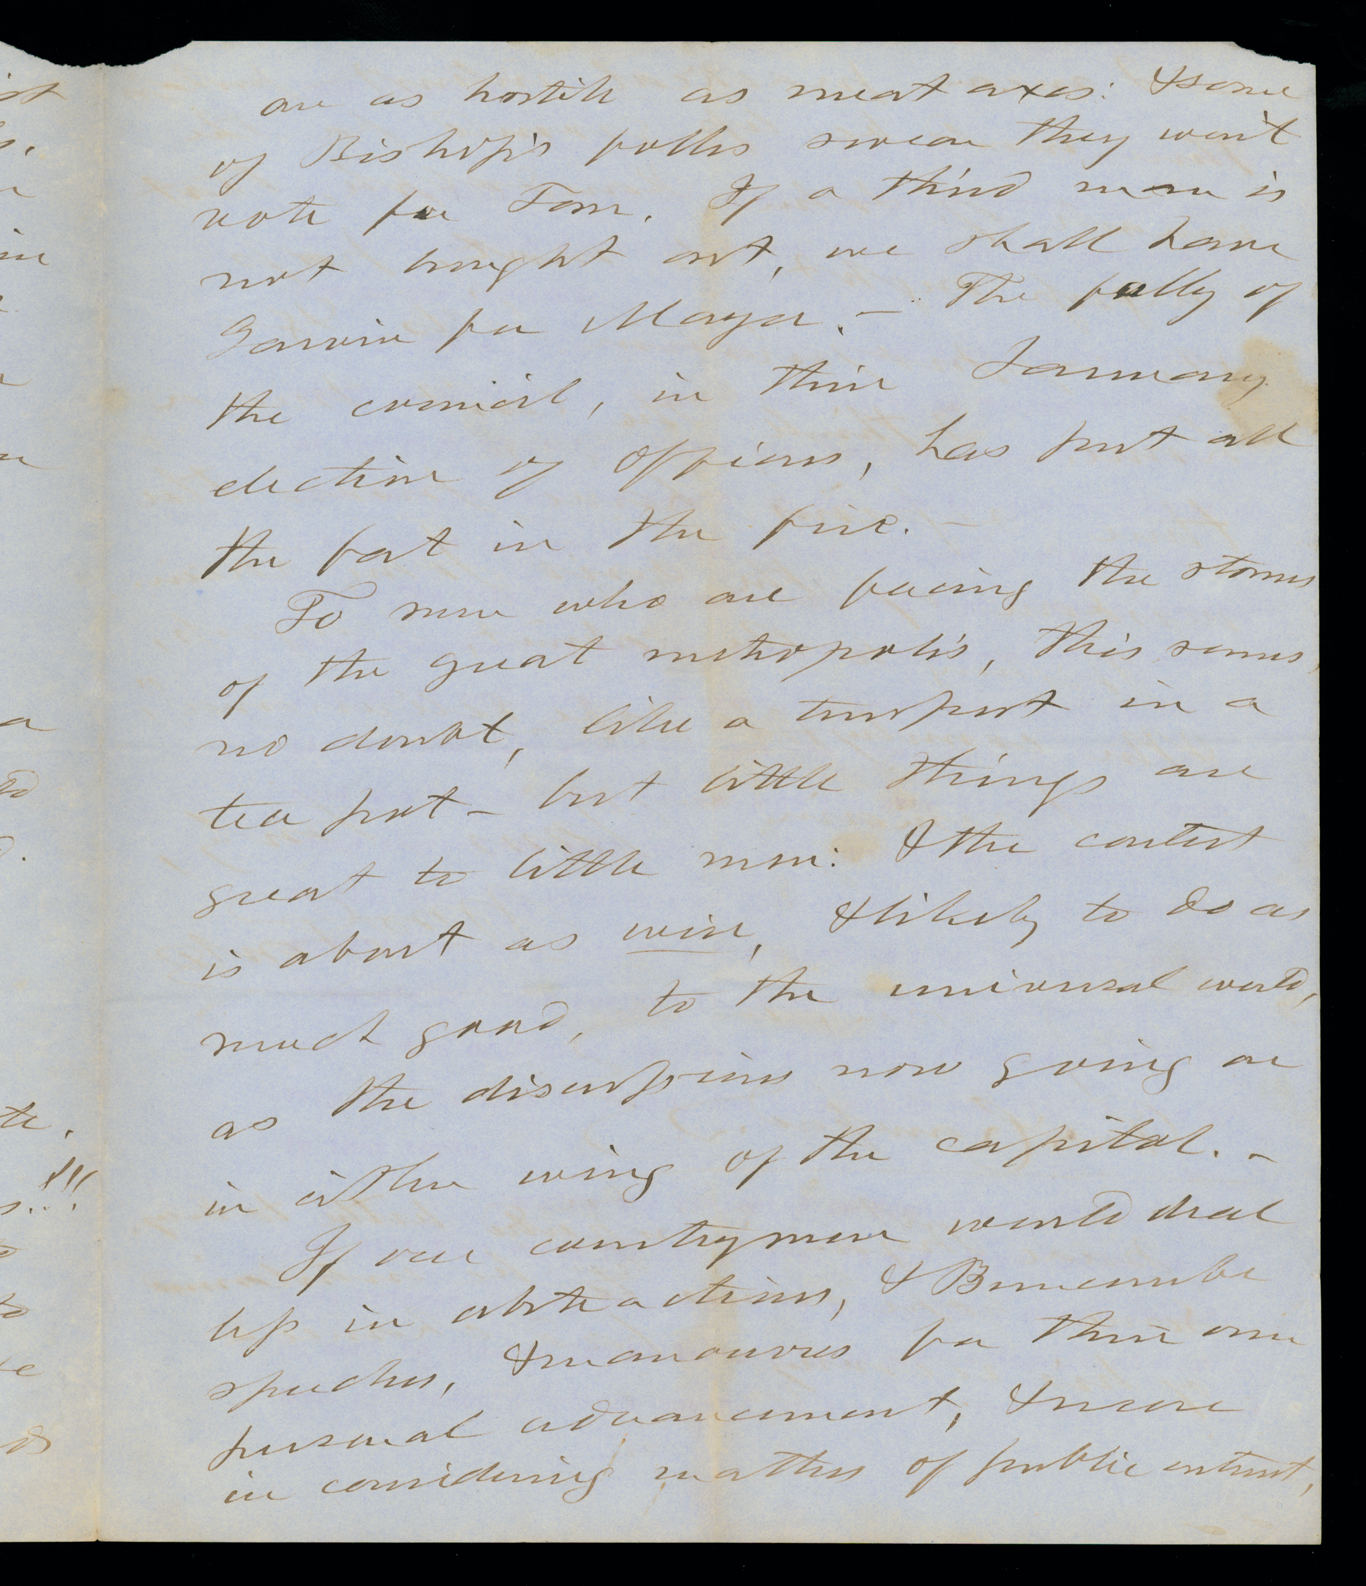 are as hostile as meat axes: & some
of Bishop's folks swear they won't
vote for Tom. If a third man is
not brought out, we shall have
Garvin for Mayor. — The folly of
the council, in their January
election of officers, has put all
the fat in the fire. —
To men who are facing the storms
of the great metropolis, this seems,
no doubt, like a tempest in a
tea pot — but little things are
great to little men: & the contest
is about as wise, & likely to do as
much good, to the universal world,
as the discussions now going on
in either wing of the capitol. —
If our countrymen would deal
less in abstractions, & Buncombe
speeches, & manouvres for their own
personal advancement, & more
in considering matters of public interest,